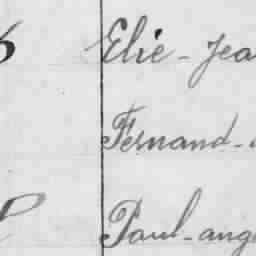 Elie - Jea
Fernand -
Paul - ang